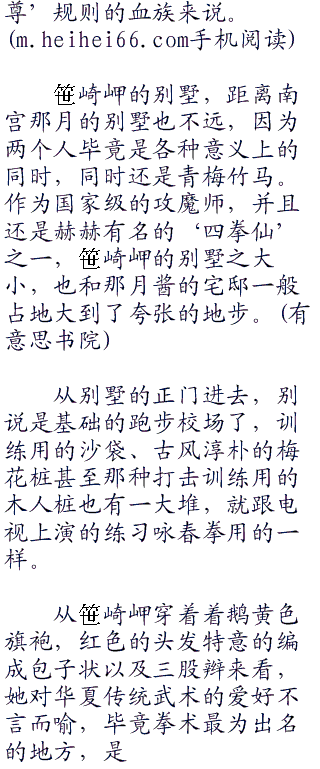 尊’规则的血族来说。
(m.heihei66.com手机阅读)
笹崎岬的别墅，距离南
宫那月的别墅也不远，因为
两个人毕竟是各种意义上的
同时，同时还是青梅竹马。
作为国家级的攻魔师，并且
还是赫赫有名的‘四拳仙’
之一，笹崎岬的别墅之大
小，也和那月酱的宅邸一般
占地大到了夸张的地步。(有
意思书院)
从别墅的正门进去，别
说是基础的跑步校场了，训
练用的沙袋、古风淳朴的梅
花桩甚至那种打击训练用的
木人桩也有一大堆，就跟电
视上演的练习咏春拳用的一
样。
从笹崎岬穿着着鹅黄色
旗袍，红色的头发特意的编
成包子状以及三股辫来看，
她对华夏传统武术的爱好不
言而喻，毕竟拳术最为出名
的地方，是